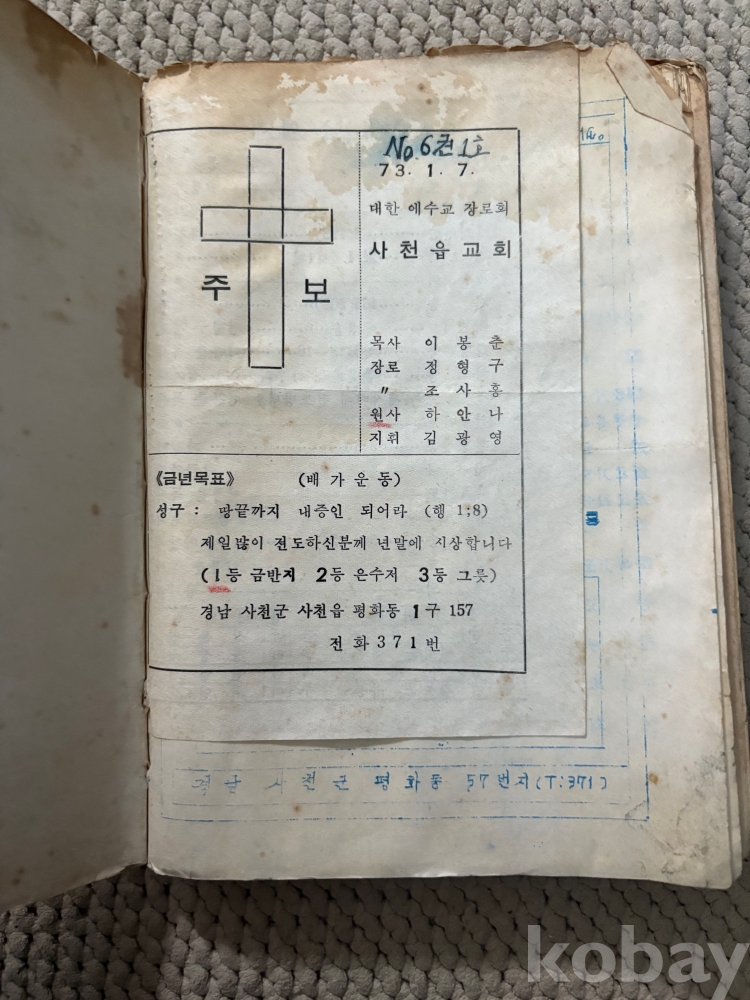 No. 6권 1호
73. 1. 7.
대한 예수교 장로회
사천읍교회
주 보
목사 이 봉 춘
장로 정 형 구
〃 조 사 흥
원사 하 안 나
지휘 김 광 영
《금년목표》 (배 가 운 동)
성구 : 땅끝까지 내증인 되어라 (행 1;8)
제일많이 전도하신분께 년말에 시상합니다
(1등 금반지 2등 은수저 3등 그릇)
경남 사천군 사천읍 평화동 1구 157
전 화 3 7 1 번
경남 사천군 평화동 57번지(T:371)
kobay